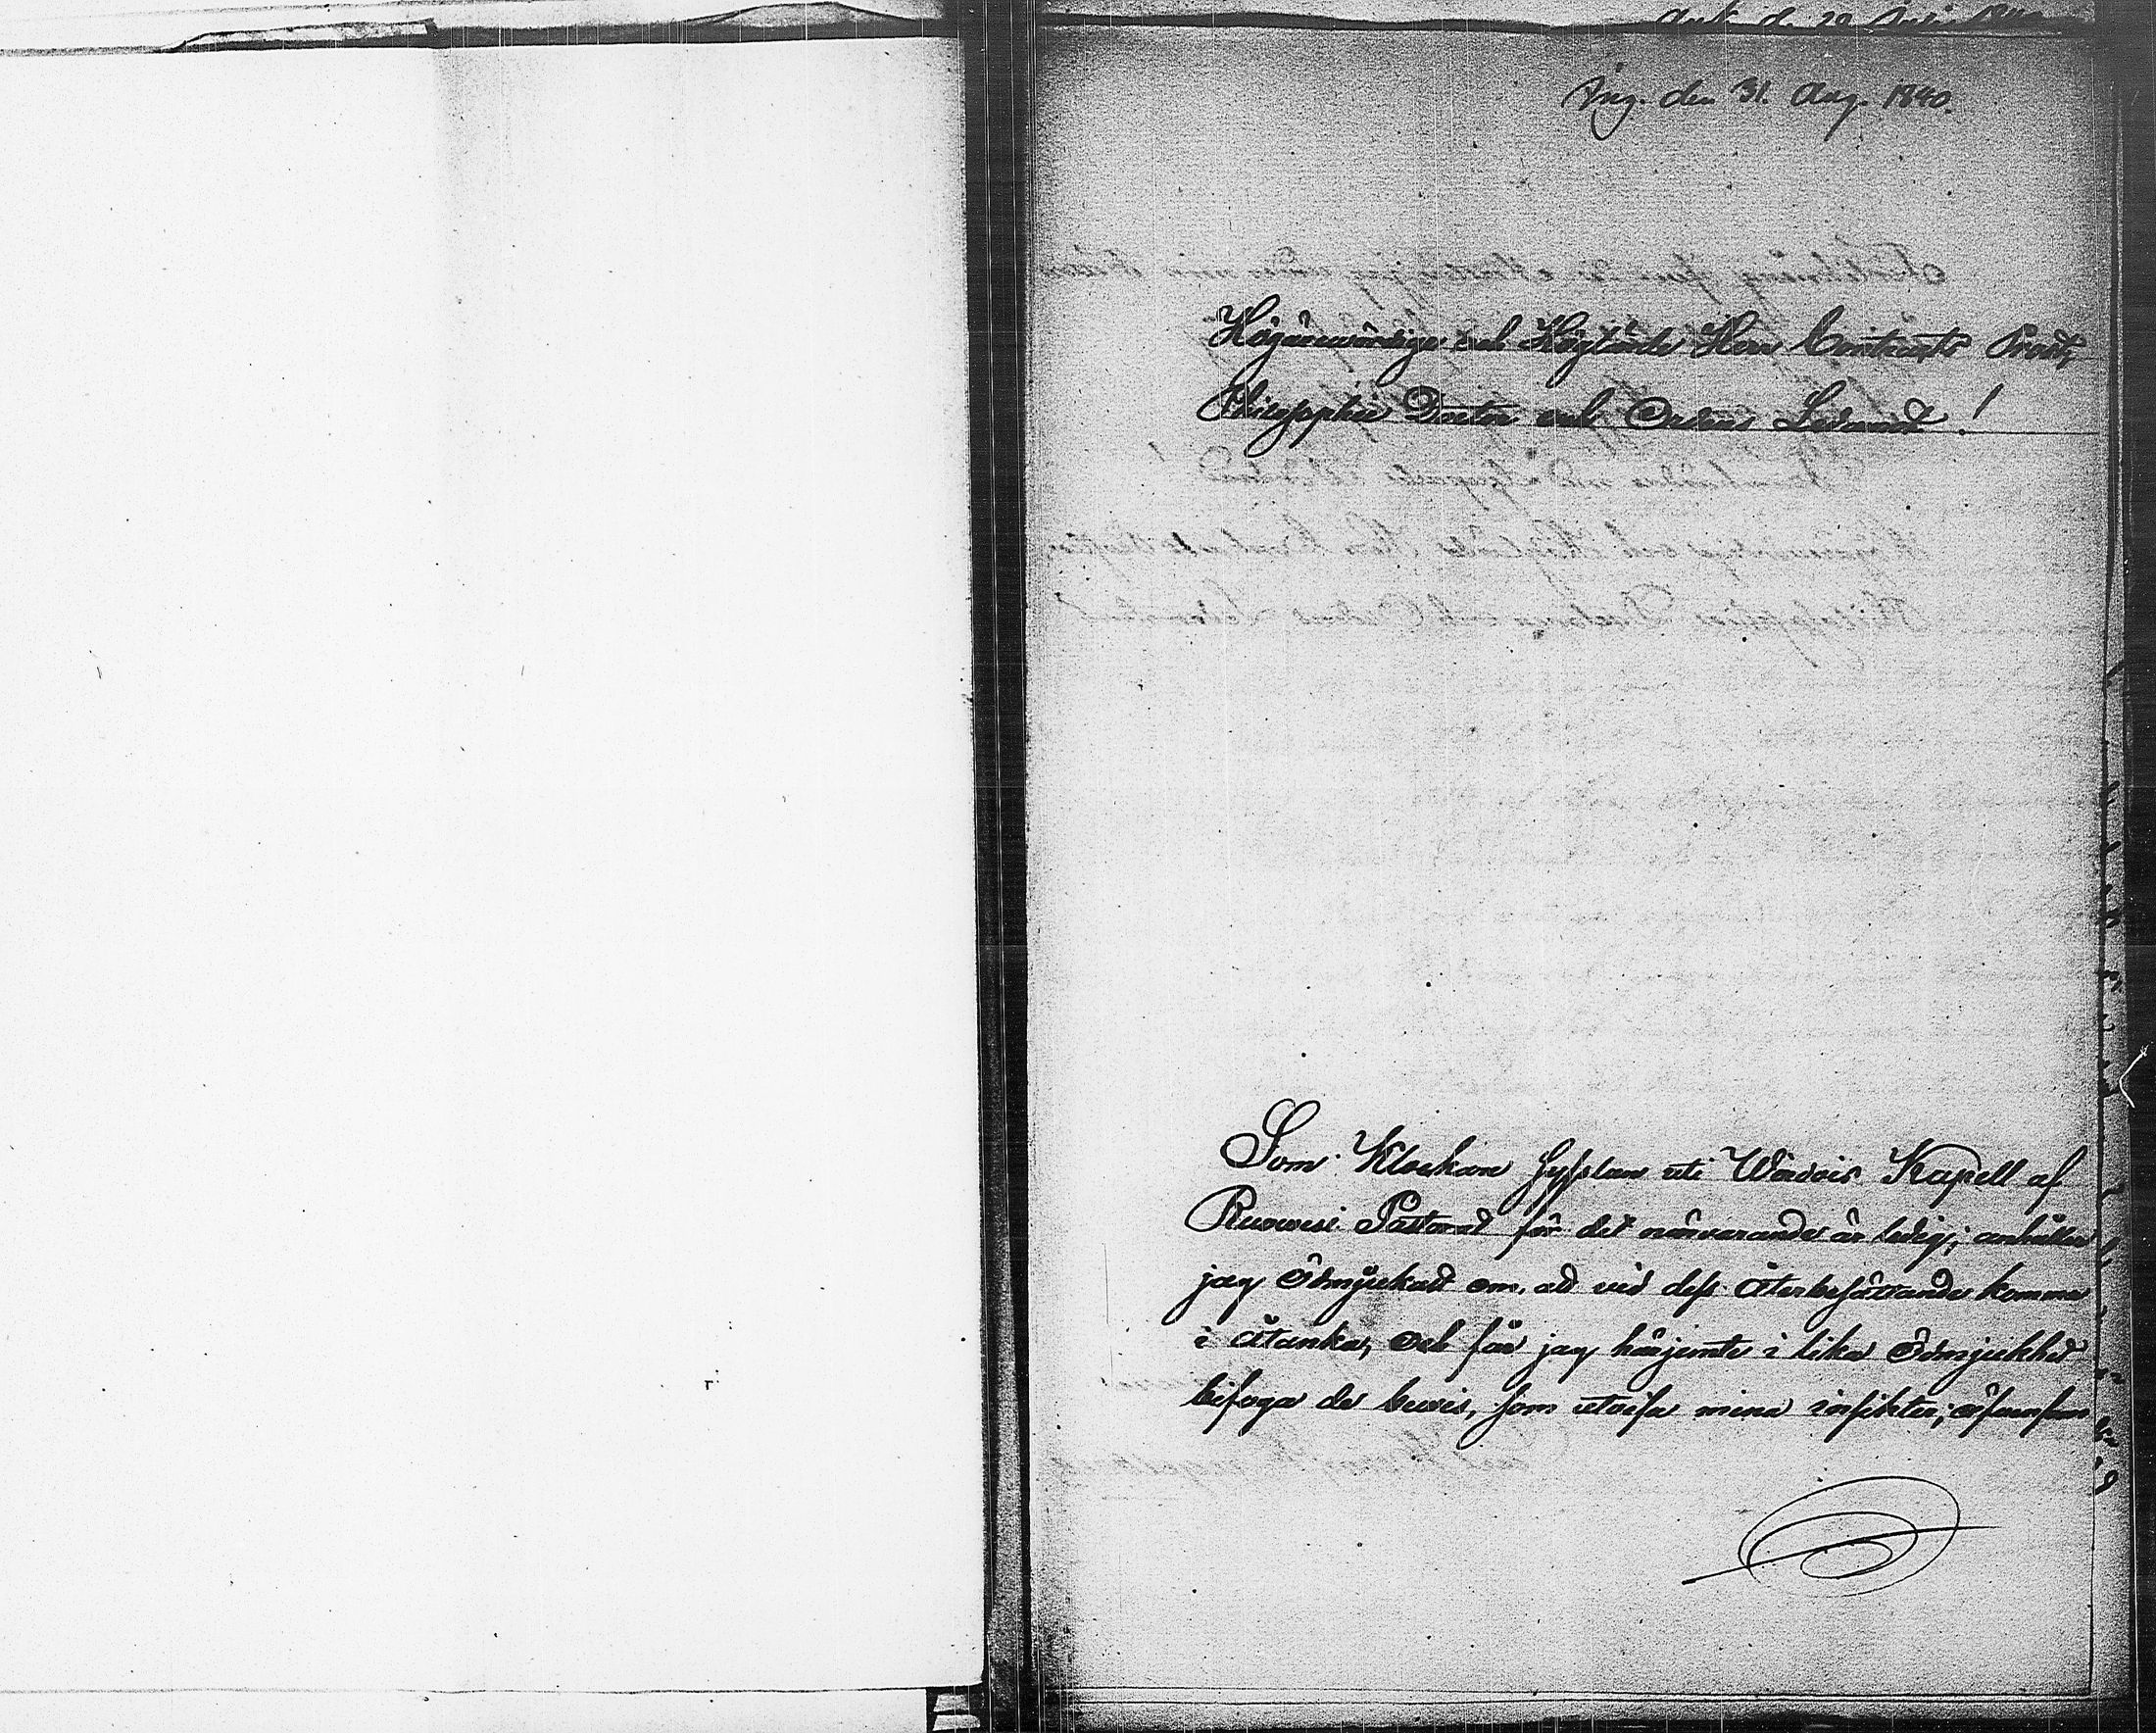 Ing. den 31. Aug. 1840.
Högärewördige och Höglärde Herr Contracts Prost,
Philosophie Doctor och Ordens Ledamot!
Som Klockare sysslan uti Wärdois Kapell af
Ruovesi Pastorat för det närvarande är ledig; anhåller
jag ödmjukast om, att vid dess återbesättande komma
i åtanka, och får jag härjemte i lika ödmjukhet
bifoga de bevis, som utvisa mina insikter;